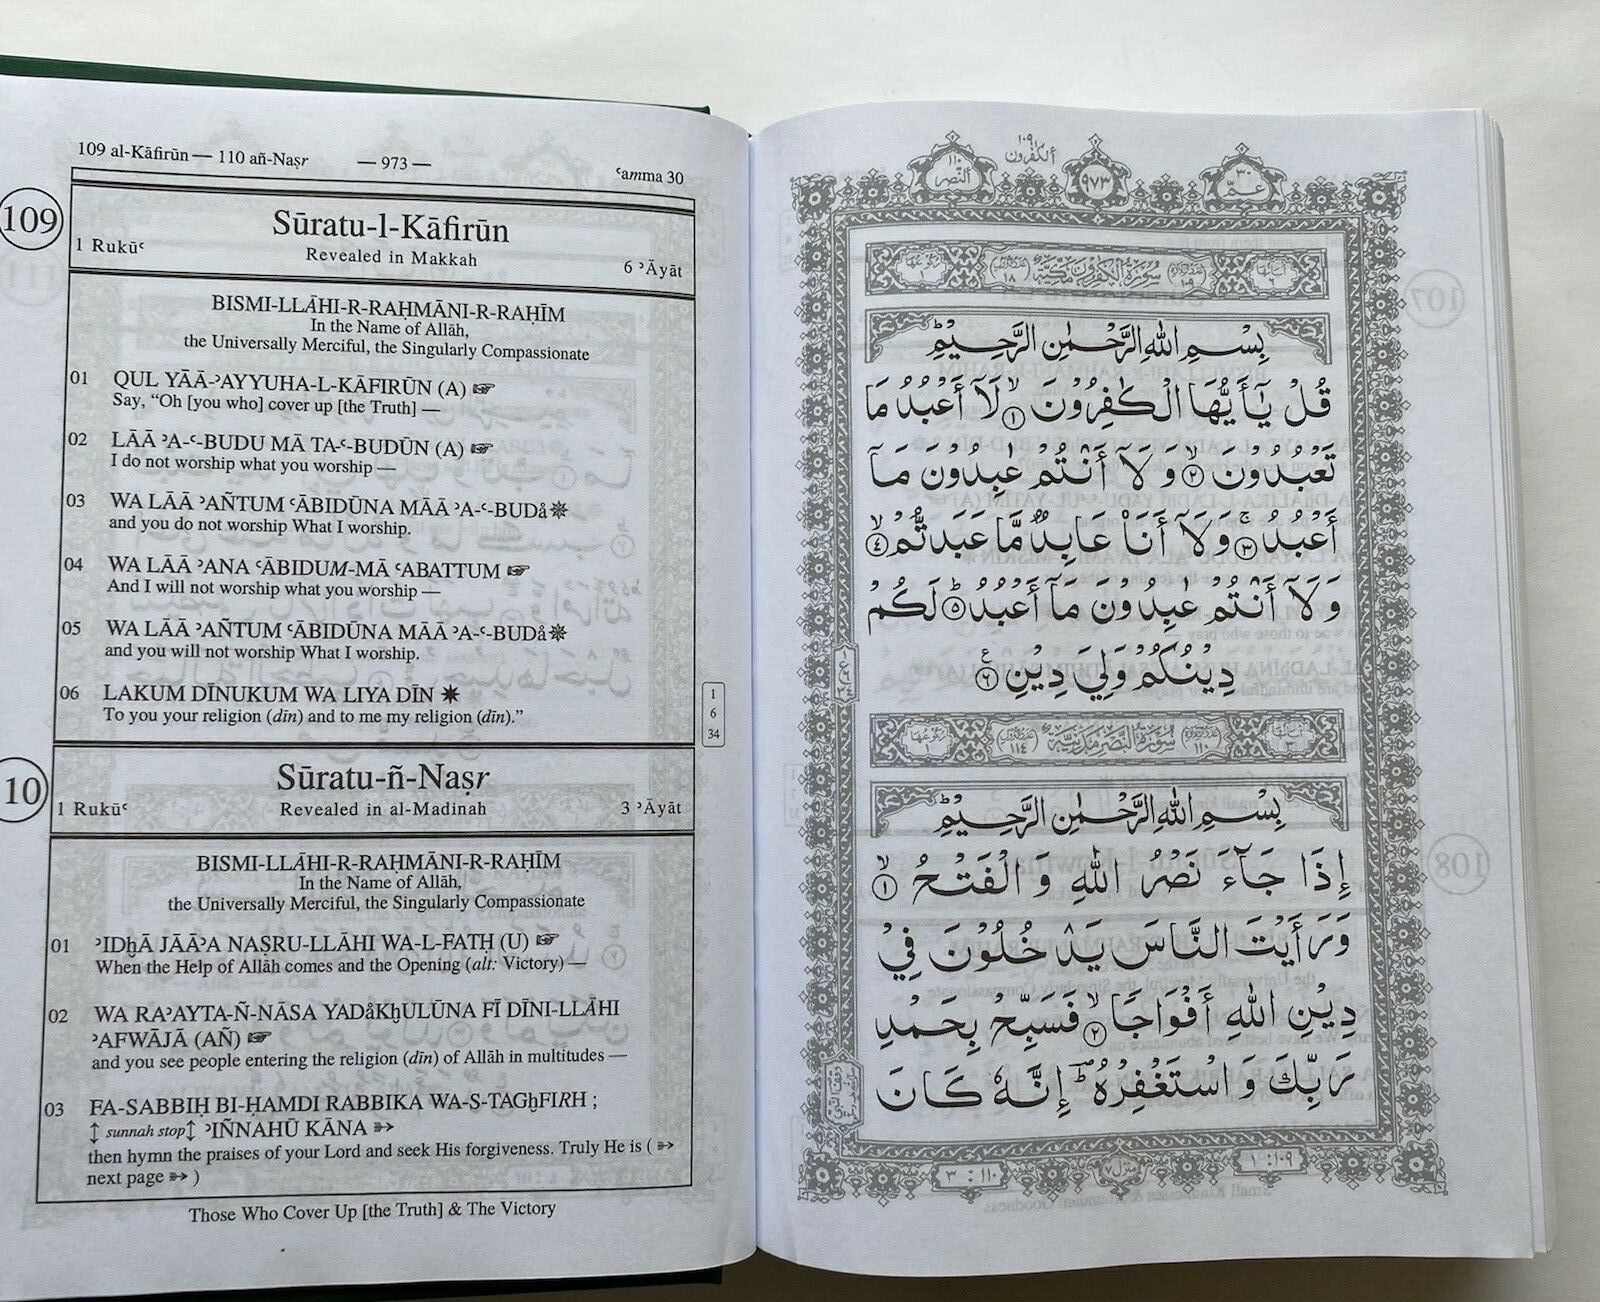 109 al-Kāfirūn — 110 añ-Naṣr — 973 — ʿamma 30
109
Sūratu-l-Kāfirūn
1 Rukūʿ Revealed in Makkah 6 ʾĀyāt
BISMI-LLĀHI-R-RAḤMĀNI-R-RAḤĪM
In the Name of Allāh,
the Universally Merciful, the Singularly Compassionate
01 QUL YĀĀ-ʾAYYUHA-L-KĀFIRŪN (A) ☞
Say, “Oh [you who] cover up [the Truth] —
02 LĀĀ ʾA-ʿ-BUDU MĀ TA-ʿ-BUDŪN (A) ☞
I do not worship what you worship —
03 WA LĀĀ ʾAÑTUM ʿĀBIDŪNA MĀĀ ʾA-ʿ-BUDå
and you do not worship What I worship.
04 WA LĀĀ ʾANA ʿĀBIDUM-MĀ ʿABATTUM ☞
And I will not worship what you worship —
05 WA LĀĀ ʾAÑTUM ʿĀBIDŪNA MĀĀ ʾA-ʿ-BUDå
and you will not worship What I worship.
06 LAKUM DĪNUKUM WA LIYA DĪN
To you your religion (dīn) and to me my religion (dīn).”
1
6
34
10
Sūratu-ñ-Naṣr
1 Rukūʿ Revealed in al-Madinah 3 ʾĀyāt
BISMI-LLĀHI-R-RAḤMĀNI-R-RAḤĪM
In the Name of Allāh,
the Universally Merciful, the Singularly Compassionate
01 ʾIDẖĀ JĀĀʾA NAṢRU-LLĀHI WA-L-FATḤ (U) ☞
When the Help of Allāh comes and the Opening (alt: Victory) —
02 WA RAʾAYTA-Ñ-NĀSA YADåKẖULŪNA FĪ DĪNI-LLĀHI
ʾAFWĀJĀ (AÑ) ☞
and you see people entering the religion (dīn) of Allāh in multitudes —
03 FA-SABBIḤ BI-ḤAMDI RABBIKA WA-S-TAGẖFIRH ;
↕ sunnah stop↕ ʾIÑNAHŪ KĀNA ➳
then hymn the praises of your Lord and seek His forgiveness. Truly He is ( ➳
next page ➳ )
Those Who Cover Up [the Truth] & The Victory
عمّ ٣٠ ٩٧٣ الكٰفرون ١٠٩ النصر ١١٠
سُوۡرَةُ الۡكٰفِرُوۡنَ مَكِّيَّةٌ
بِسۡمِ اللّٰهِ الرَّحۡمٰنِ الرَّحِيۡمِ
قُلۡ يٰٓاَيُّهَا الۡكٰفِرُوۡنَ ۙ‏﴿١﴾ لَاۤ اَعۡبُدُ مَا
تَعۡبُدُوۡنَ ۙ‏﴿٢﴾ وَ لَاۤ اَنۡتُمۡ عٰبِدُوۡنَ مَاۤ
اَعۡبُدُ ۚ‏﴿٣﴾ وَ لَاۤ اَنَا عَابِدٌ مَّا عَبَدتُّمۡ ۙ‏﴿٤﴾
وَ لَاۤ اَنۡتُمۡ عٰبِدُوۡنَ مَاۤ اَعۡبُدُ ؕ‏﴿٥﴾ لَكُمۡ
دِيۡنُكُمۡ وَلِيَ دِيۡنِ ‏﴿٦﴾
سُوۡرَةُ النَّصۡرِ مَدَنِيَّةٌ
بِسۡمِ اللّٰهِ الرَّحۡمٰنِ الرَّحِيۡمِ
اِذَا جَآءَ نَصۡرُ اللّٰهِ وَ الۡفَتۡحُ ۙ‏﴿١﴾
وَ رَاَيۡتَ النَّاسَ يَدۡخُلُوۡنَ فِيۡ
دِيۡنِ اللّٰهِ اَفۡوَاجًا ۙ‏﴿٢﴾ فَسَبِّحۡ بِحَمۡدِ
رَبِّكَ وَ اسۡتَغۡفِرۡهُ ؕ اِنَّهٗ كَانَ
١ : ١٠٩ منزل ٧ ٣ : ١١٠